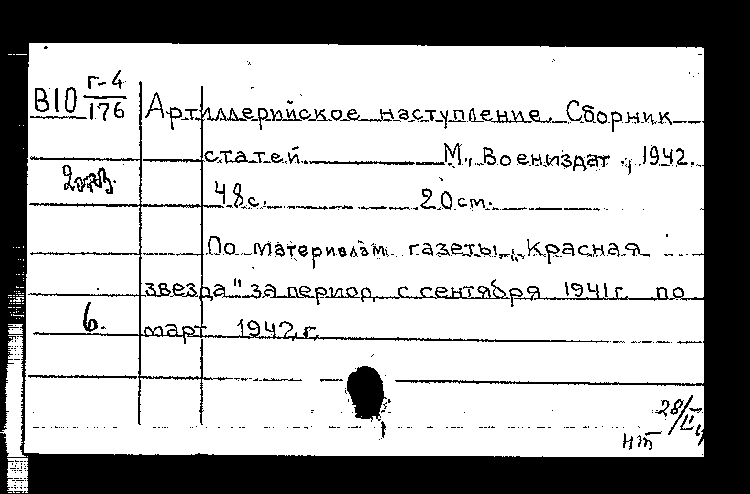 В10 г-4/176 Артиллерийское наступление. Сборник
статей М., Воениздат, 1942.
2 экз.
48с. 20см.
По материалам газеты „Красная
звезда" за период с сентября 1941г. по
6. март 1942 г.
28/II
нт